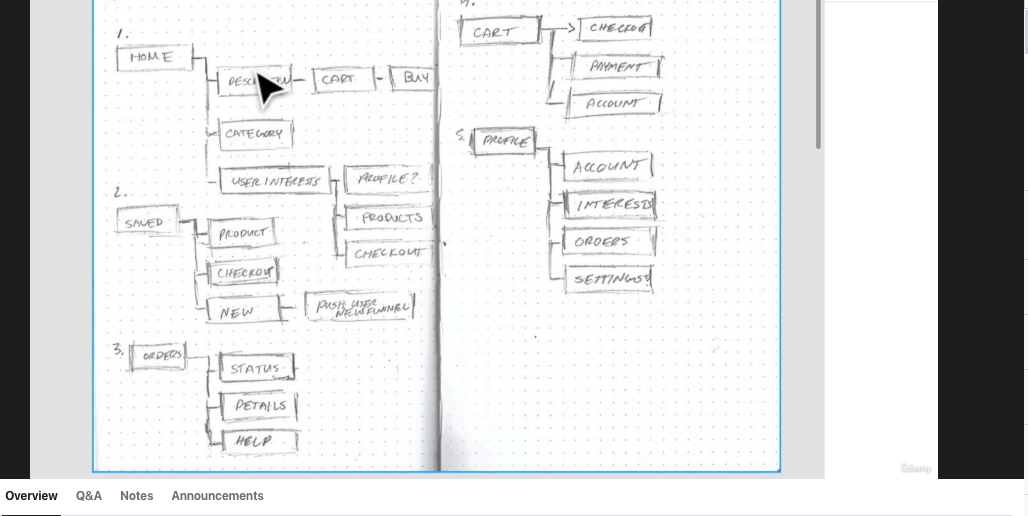 1.
HOME
CART
BUY
CATEGORY
USER INTERESTS
PROFILE?
PRODUCTS
CHECKOUT
2.
SAVED
PRODUCT
CHECKOUT
NEW
PUSH USER
NEW FUNNEL
3.
ORDERS
STATUS
DETAILS
HELP
CART
CHECKOUT
PAYMENT
ACCOUNT
5.
PROFILE
ACCOUNT
INTERESTS
ORDERS
SETTINGS?
Udemy
Overview Q&A Notes Announcements